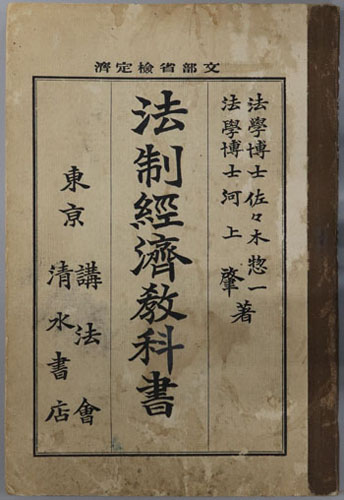 文部省檢定濟
法學博士 佐々木惣一
法學博士 河上肇 著
法制經濟敎科書
東京 講法會
清水書店